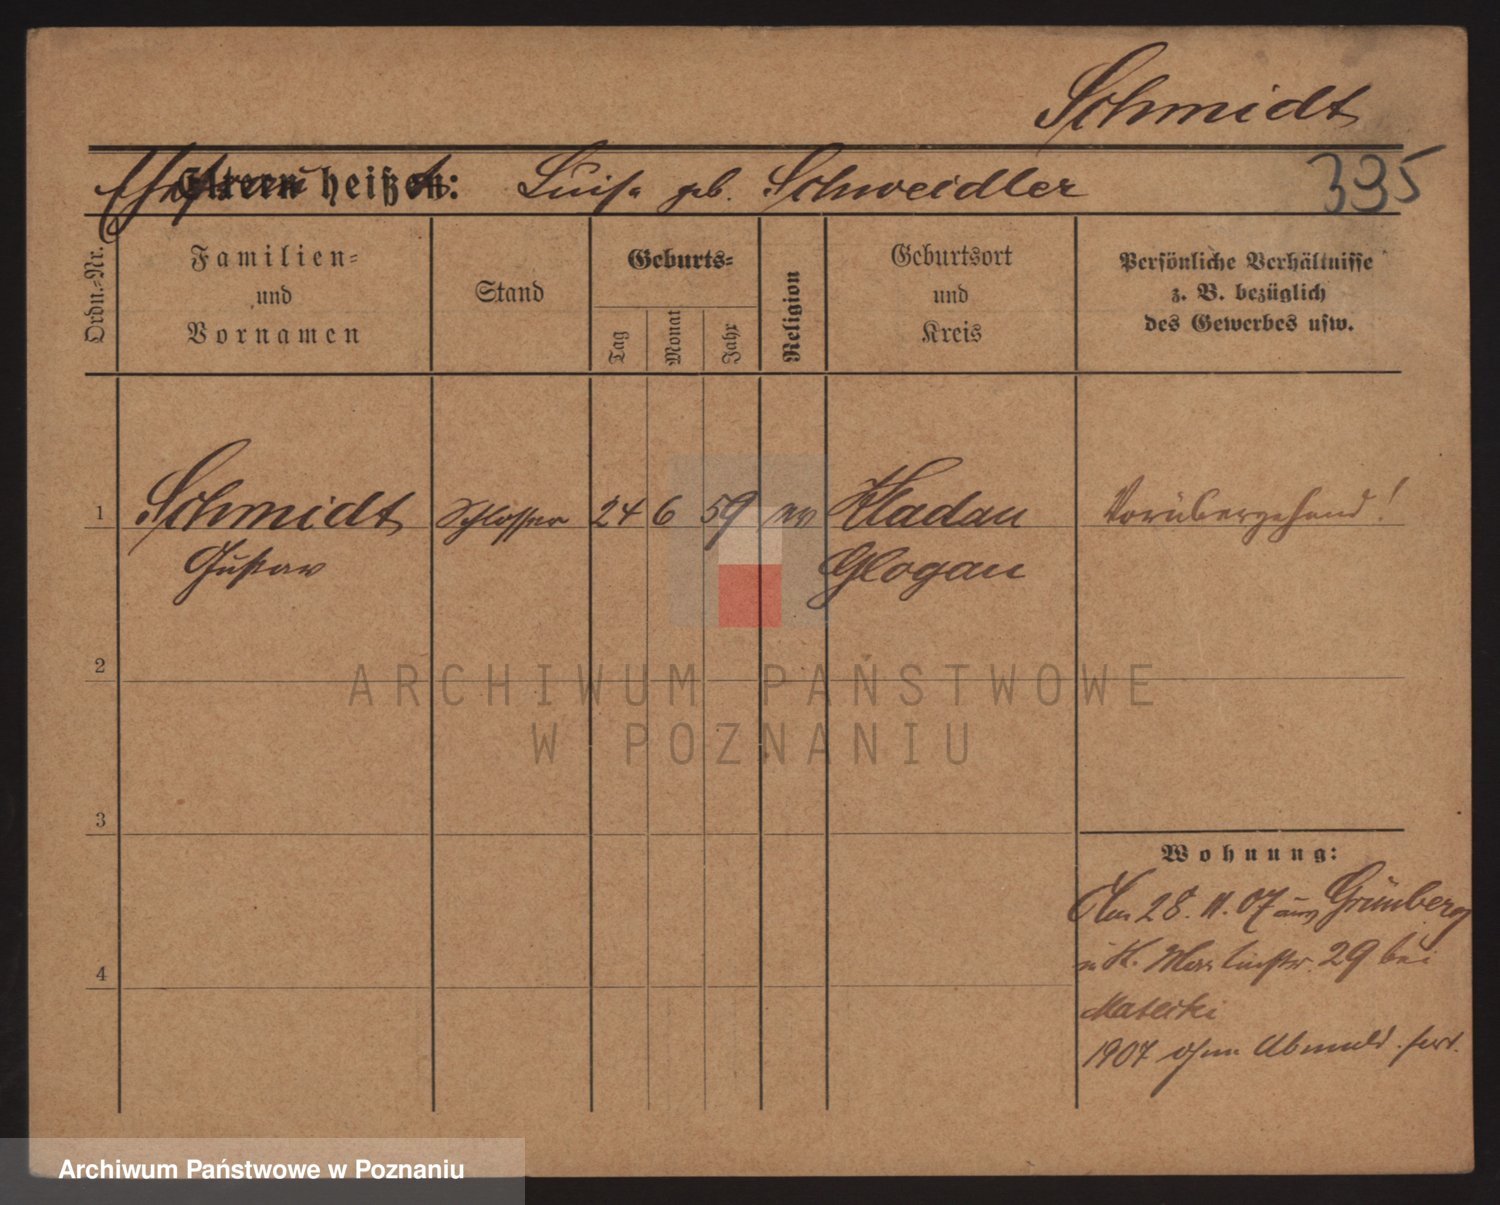 Schmidt
Ehefrau heißt: Luise geb. Schweidler
335
Ordn.-Nr.
Familien-
und
Vornamen
Stand
Geburts-
Tag
Monat
Jahr
Religion
Geburtsort
und
Kreis
Persönliche Verhältnisse
z. B. bezüglich
des Gewerbes usw.
1 Schmidt Schlosser 24 6 59 ev Kladau Vorübergehend!
Gustav Glogau
2
ARCHIWUM PAŃSTWOWE
W POZNANIU
3
Wohnung:
Am 28.11.07 aus Grünberg
n. H. Martinstr. 29 bei
Matecki
1907 ohne Abmeld. fort.
4
Archiwum Państwowe w Poznaniu